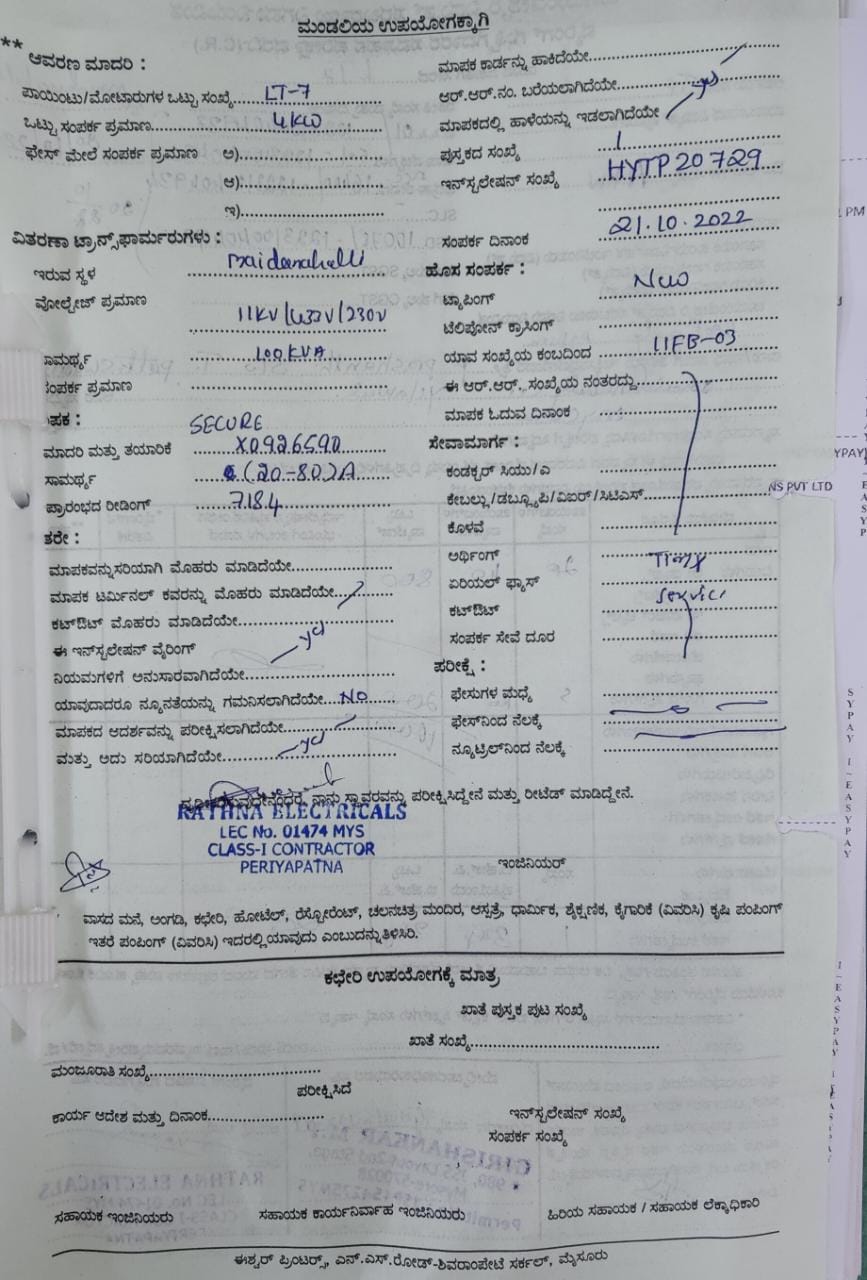 ಮಂಡಲಿಯ ಉಪಯೋಗಕ್ಕಾಗಿ
** ಆವರಣ ಮಾದರಿ :
ಪಾಯಿಂಟು/ಮೋಟಾರುಗಳ ಒಟ್ಟು ಸಂಖ್ಯೆ...LT-7
ಒಟ್ಟು ಸಂಪರ್ಕ ಪ್ರಮಾಣ...4KW
ಫೇಸ್ ಮೇಲೆ ಸಂಪರ್ಕ ಪ್ರಮಾಣ ಅ)...
ಆ)...
ಇ)...
ವಿತರಣಾ ಟ್ರಾನ್ಸ್‌ಫಾರ್ಮರುಗಳು :
ಇರುವ ಸ್ಥಳ ...Maidanahalli
ವೋಲ್ಟೇಜ್ ಪ್ರಮಾಣ 11KV/433V/230V
ಸಾಮರ್ಥ್ಯ ...100KVA
ಸಂಪರ್ಕ ಪ್ರಮಾಣ ...
ಪಕ : SECURE
ಮಾದರಿ ಮತ್ತು ತಯಾರಿಕೆ ...X0926590
ಸಾಮರ್ಥ್ಯ ...(20-80)A
ಪ್ರಾರಂಭದ ರೀಡಿಂಗ್ ...718.4
ತರೇ :
ಮಾಪಕವನ್ನು ಸರಿಯಾಗಿ ಮೊಹರು ಮಾಡಿದೆಯೇ...
ಮಾಪಕ ಟರ್ಮಿನಲ್ ಕವರನ್ನು ಮೊಹರು ಮಾಡಿದೆಯೇ...
ಕಟ್‌ಔಟ್ ಮೊಹರು ಮಾಡಿದೆಯೇ...
ಈ ಇನ್‌ಸ್ಟಲೇಷನ್ ವೈರಿಂಗ್ yes
ನಿಯಮಗಳಿಗೆ ಅನುಸಾರವಾಗಿದೆಯೇ...
ಯಾವುದಾದರೂ ನ್ಯೂನತೆಯನ್ನು ಗಮನಿಸಲಾಗಿದೆಯೇ...NO
ಮಾಪಕದ ಆದರ್ಶವನ್ನು ಪರೀಕ್ಷಿಸಲಾಗಿದೆಯೇ...
ಮತ್ತು ಅದು ಸರಿಯಾಗಿದೆಯೇ...yes
ಮಾಪಕ ಕಾರ್ಡನ್ನು ಹಾಕಿದೆಯೇ...
ಆರ್.ಆರ್.ನಂ. ಬರೆಯಲಾಗಿದೆಯೇ...yes
ಮಾಪಕದಲ್ಲಿ ಹಾಳೆಯನ್ನು ಇಡಲಾಗಿದೆಯೇ
ಪುಸ್ತಕದ ಸಂಖ್ಯೆ ...1
ಇನ್‌ಸ್ಟಲೇಷನ್ ಸಂಖ್ಯೆ ...HYTP20729
ಸಂಪರ್ಕ ದಿನಾಂಕ ...21.10.2022
ಹೊಸ ಸಂಪರ್ಕ :
ಟ್ಯಾಪಿಂಗ್ ...New
ಟೆಲಿಪೋನ್ ಕ್ರಾಸಿಂಗ್ ...
ಯಾವ ಸಂಖ್ಯೆಯ ಕಂಬದಿಂದ ...LIFB-03
ಈ ಆರ್.ಆರ್. ಸಂಖ್ಯೆಯ ನಂತರದ್ದು...
ಮಾಪಕ ಓದುವ ದಿನಾಂಕ ...
ಸೇವಾಮಾರ್ಗ :
ಕಂಡಕ್ಟರ್ ಸಿಯು/ಎ ...
ಕೇಬಲ್ಲು/ಡಬ್ಲ್ಯೂಪಿ/ವಿಐರ್/ಸಿಟಿಎಸ್...
ಕೊಳವೆ ...
ಅರ್ಥಿಂಗ್ ...Timy
ಏರಿಯಲ್ ಫ್ಯೂಸ್ ...
ಕಟ್‌ಔಟ್ ...service
ಸಂಪರ್ಕ ಸೇವೆ ದೂರ ...
ಪರೀಕ್ಷೆ :
ಫೇಸುಗಳ ಮಧ್ಯೆ ...
ಫೇಸ್‌ನಿಂದ ನೆಲಕ್ಕೆ ...
ನ್ಯೂಟ್ರಲ್‌ನಿಂದ ನೆಲಕ್ಕೆ ...
ನಾನು ಸ್ಥಾವರವನ್ನು ಪರೀಕ್ಷಿಸಿದ್ದೇನೆ ಮತ್ತು ರೀಟೆಡ್ ಮಾಡಿದ್ದೇನೆ.
RATHNA ELECTRICALS
LEC No. 01474 MYS
CLASS-I CONTRACTOR
PERIYAPATNA
ಇಂಜಿನಿಯರ್
ವಾಸದ ಮನೆ, ಅಂಗಡಿ, ಕಛೇರಿ, ಹೋಟೆಲ್, ರೆಸ್ಟೋರೆಂಟ್, ಚಲನಚಿತ್ರ ಮಂದಿರ, ಆಸ್ಪತ್ರೆ, ಧಾರ್ಮಿಕ, ಶೈಕ್ಷಣಿಕ, ಕೈಗಾರಿಕೆ (ವಿವರಿಸಿ) ಕೃಷಿ ಪಂಪಿಂಗ್
ಇತರೆ ಪಂಪಿಂಗ್ (ವಿವರಿಸಿ) ಇದರಲ್ಲಿ ಯಾವುದು ಎಂಬುದನ್ನು ತಿಳಿಸಿರಿ.
ಕಛೇರಿ ಉಪಯೋಗಕ್ಕೆ ಮಾತ್ರ
ಖಾತೆ ಪುಸ್ತಕ ಪುಟ ಸಂಖ್ಯೆ
ಖಾತೆ ಸಂಖ್ಯೆ...
ಮಂಜೂರಾತಿ ಸಂಖ್ಯೆ...
ಪರೀಕ್ಷಿಸಿದೆ
ಕಾರ್ಯ ಆದೇಶ ಮತ್ತು ದಿನಾಂಕ...
ಇನ್‌ಸ್ಟಲೇಷನ್ ಸಂಖ್ಯೆ
ಸಂಪರ್ಕ ಸಂಖ್ಯೆ
ಸಹಾಯಕ ಇಂಜಿನಿಯರು ಸಹಾಯಕ ಕಾರ್ಯನಿರ್ವಾಹ ಇಂಜಿನಿಯರು ಹಿರಿಯ ಸಹಾಯಕ / ಸಹಾಯಕ ಲೆಕ್ಕಾಧಿಕಾರಿ
ಈಶ್ವರ್ ಪ್ರಿಂಟರ್ಸ್, ಎನ್.ಎಸ್.ರೋಡ್-ಶಿವರಾಂಪೇಟೆ ಸರ್ಕಲ್, ಮೈಸೂರು
PM
YPAY
NS PVT LTD